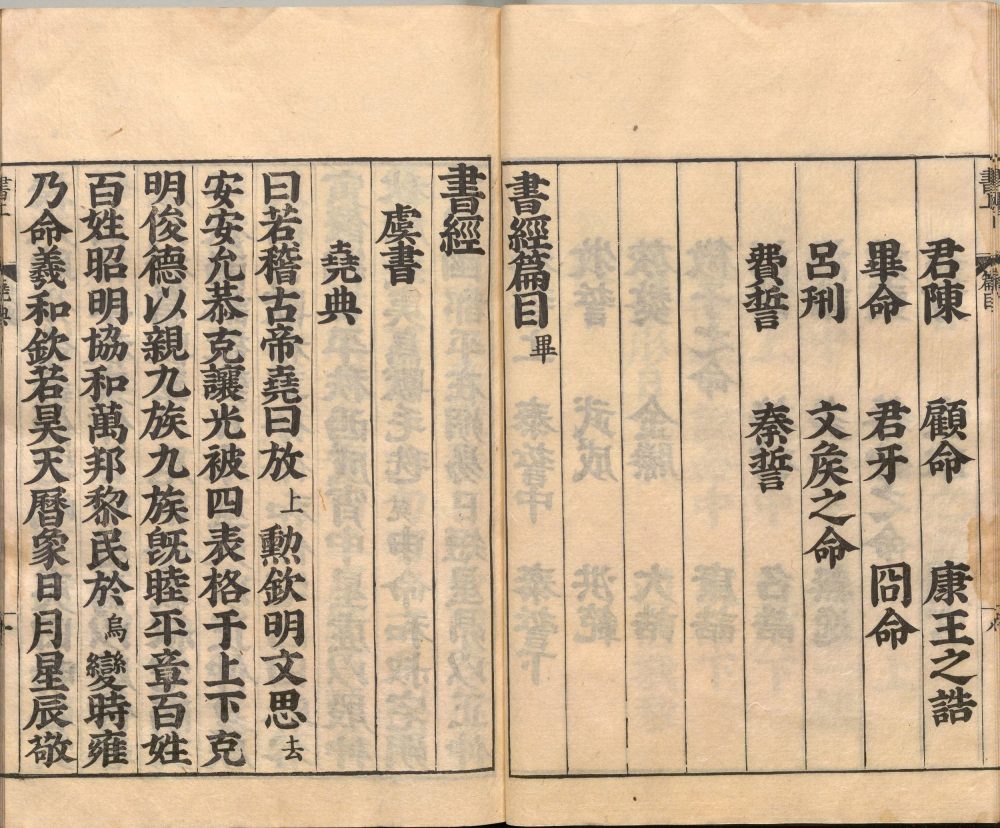 君陳 顧命 康王之誥
畢命 君牙 冏命
呂刑 文矦之命
費誓 秦誓
書經篇目畢
書經
虞書
堯典
曰若稽古帝堯曰放上勳欽明文思去
安安允恭克讓光被四表格于上下克
明俊德以親九族九族旣睦平章百姓
百姓昭明協和萬邦黎民於烏變時雍
乃命羲和欽若昊天曆象日月星辰敬